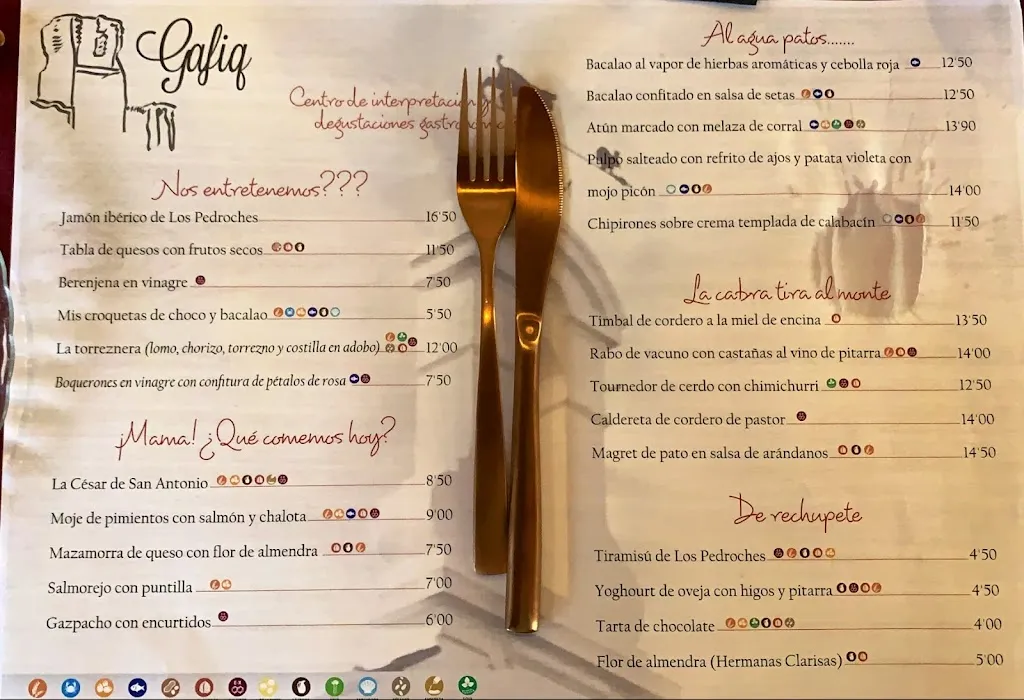 Gafiq
Centro de interpretación y
degustaciones
Nos entretenemos???
Jamón ibérico de Los Pedroches 16'50
Tabla de quesos con frutos secos 11'50
Berenjena en vinagre 7'50
Mis croquetas de choco y bacalao 5'50
La torreznera (lomo, chorizo, torrezno y costilla en adobo) 12'00
Boquerones en vinagre con confitura de pétalos de rosa 7'50
¡Mama! ¿Qué comemos hoy?
La César de San Antonio 8'50
Moje de pimientos con salmón y chalota 9'00
Mazamorra de queso con flor de almendra 7'50
Salmorejo con puntilla 7'00
Gazpacho con encurtidos 6'00
Al agua patos.......
Bacalao al vapor de hierbas aromáticas y cebolla roja 12'50
Bacalao confitado en salsa de setas 12'50
Atún marcado con melaza de corral 13'90
Pulpo salteado con refrito de ajos y patata violeta con
mojo picón 14'00
Chipirones sobre crema templada de calabacín 11'50
La cabra tira al monte
Timbal de cordero a la miel de encina 13'50
Rabo de vacuno con castañas al vino de pitarra 14'00
Tournedor de cerdo con chimichurri 12'50
Caldereta de cordero de pastor 14'00
Magret de pato en salsa de arándanos 14'50
De rechupete
Tiramisú de Los Pedroches 4'50
Yoghourt de oveja con higos y pitarra 4'50
Tarta de chocolate 4'00
Flor de almendra (Hermanas Clarisas) 5'00